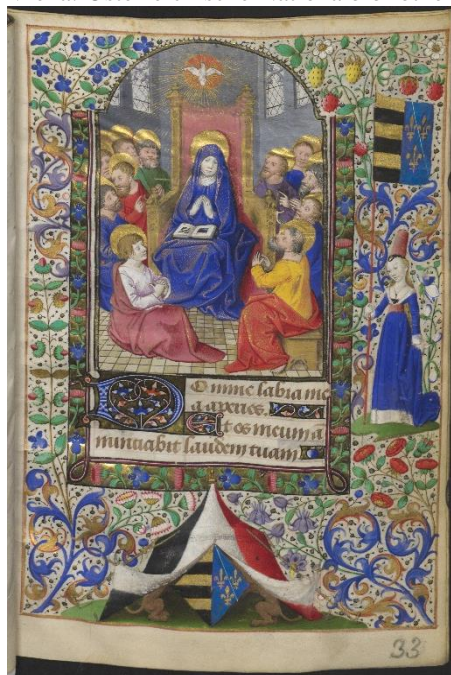 DOmine labia me
a aperies.
Et os meum a
nuntiabit laudem tuam
33